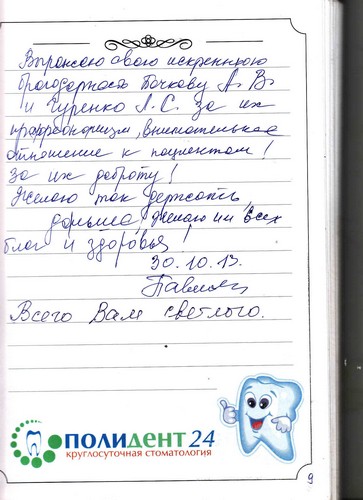 Выражаю свою искреннюю
благодарность Бочкову А. В.
и Гуренко Л. С. за их
профессионализм, внимательное
отношение к пациентам!
За их доброту!
Желаю так держать
дальше, желаю им всех
благ и здоровья!
30.10.13.
Всего Вам светлого.
ПОЛИДЕНТ 24
круглосуточная стоматология
9